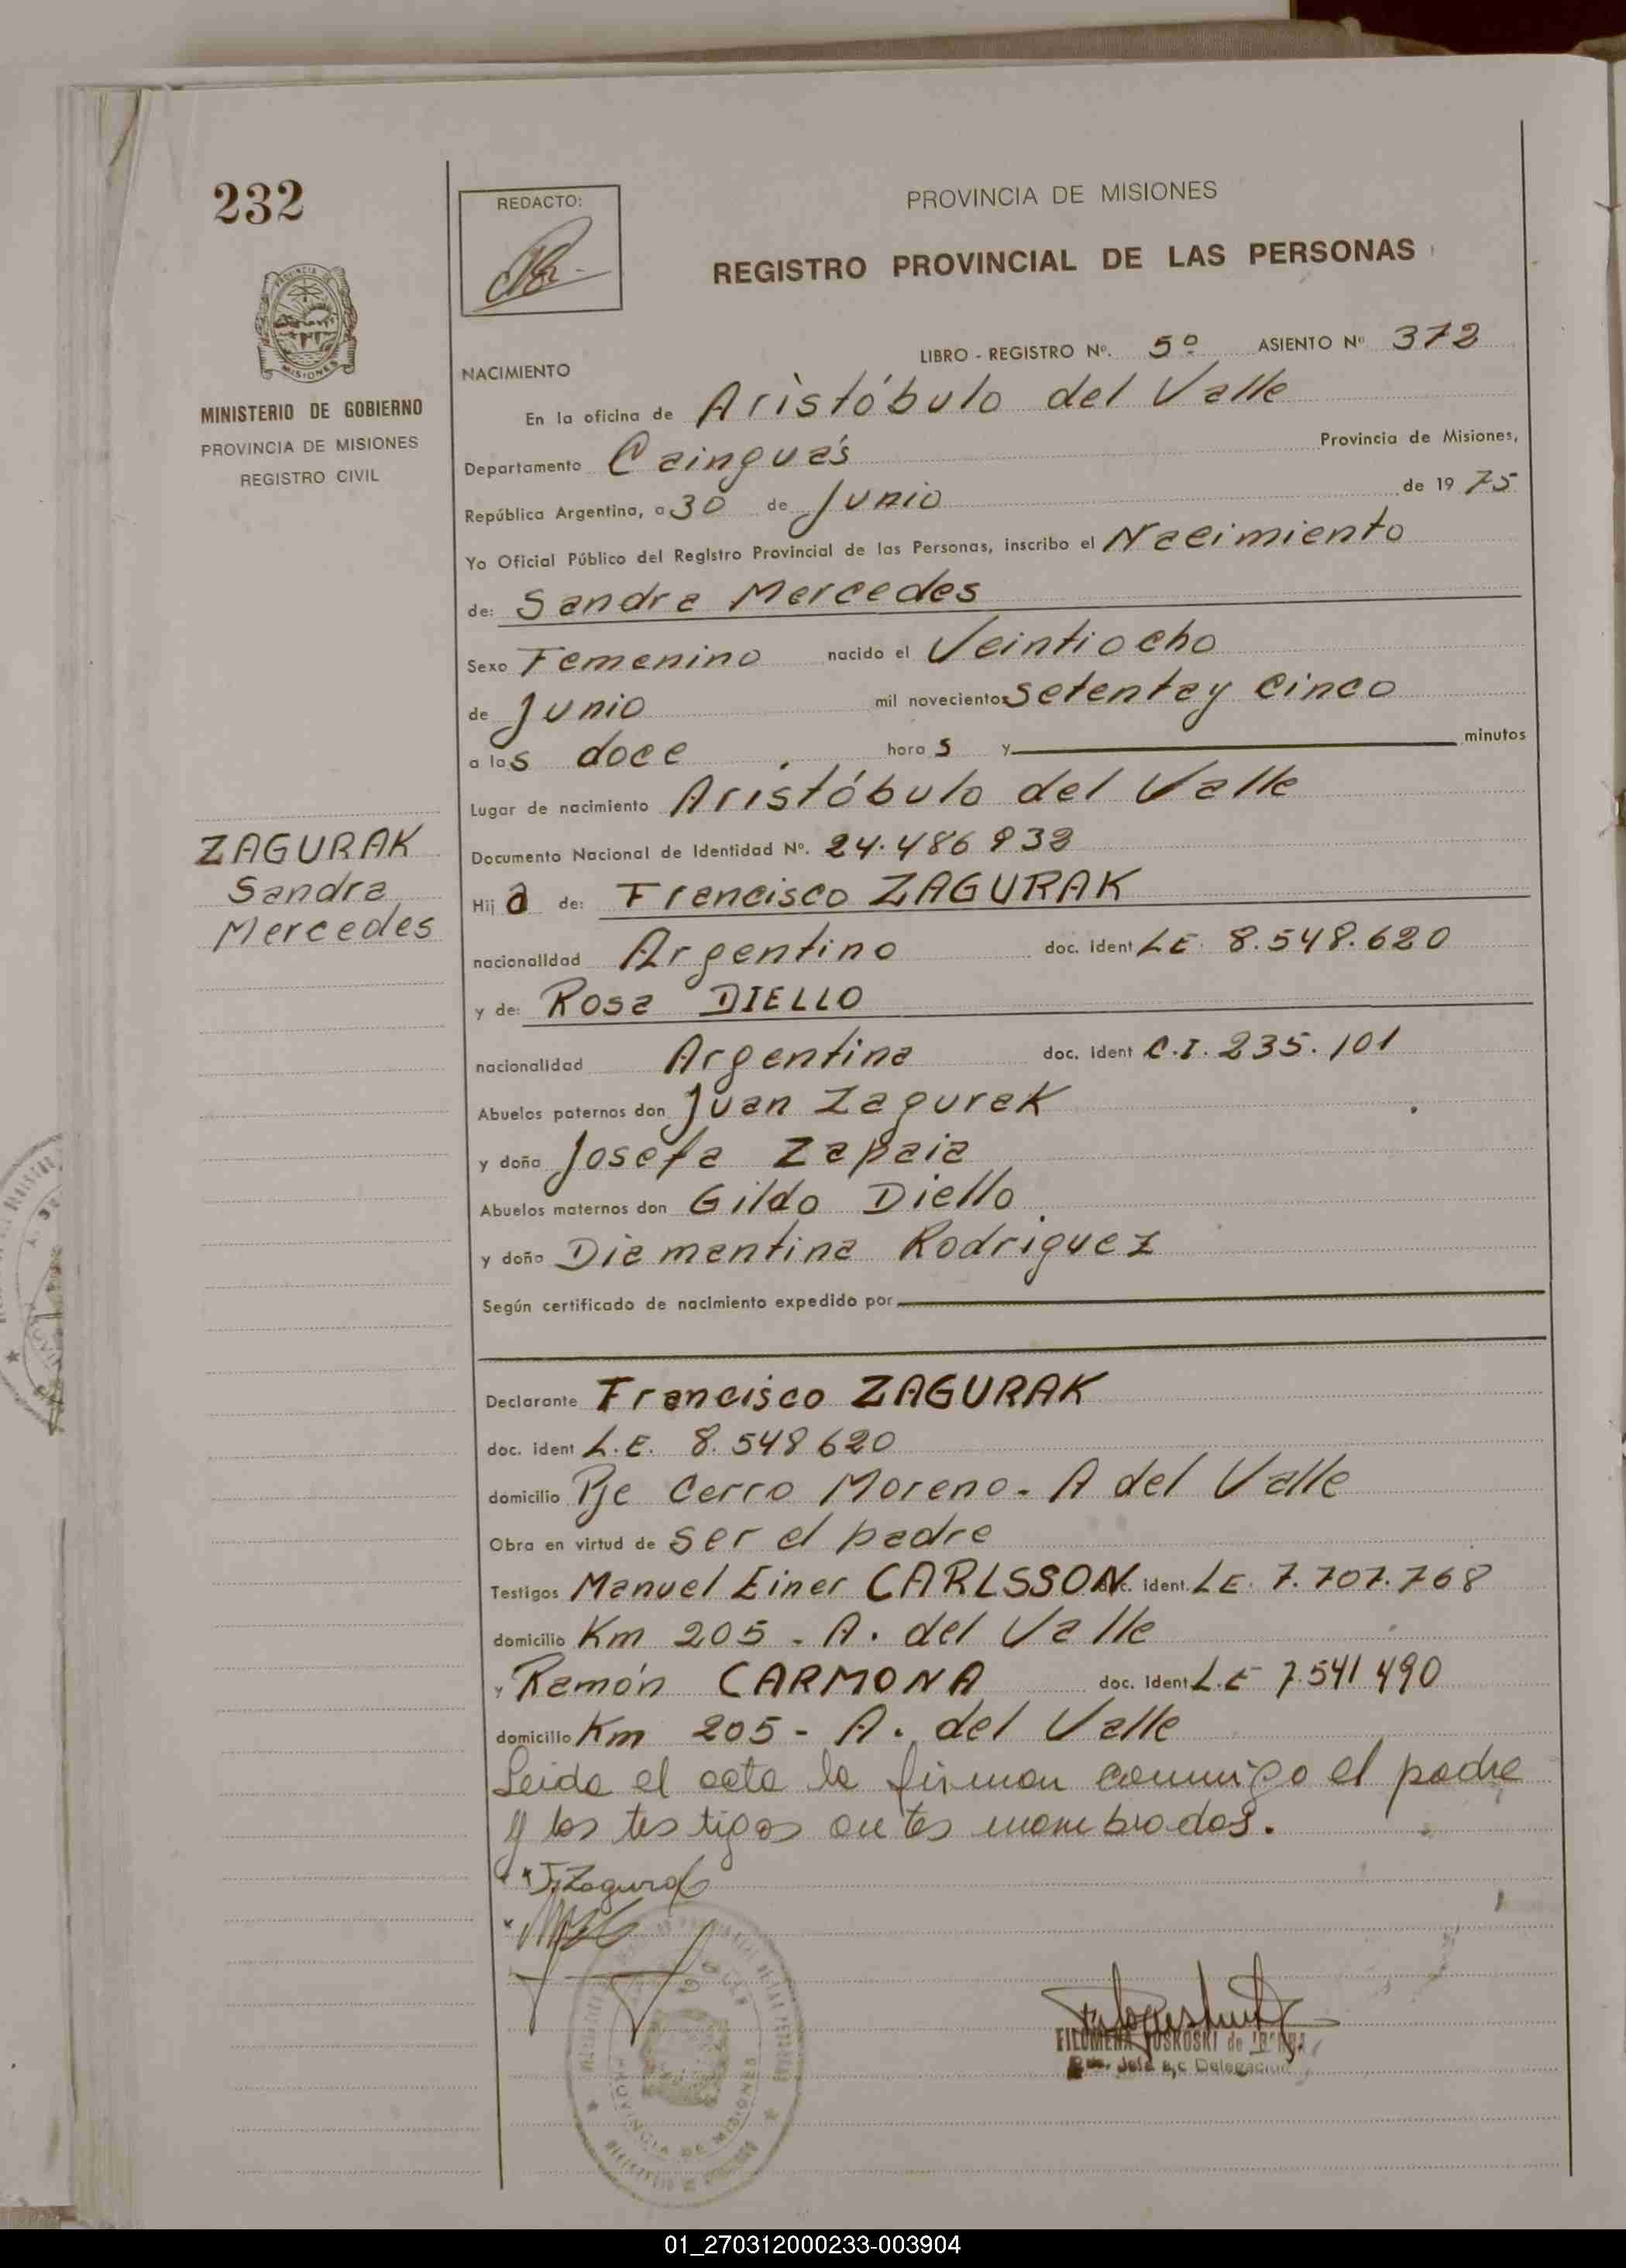 232
REDACTO:
PROVINCIA DE MISIONES
REGISTRO PROVINCIAL DE LAS PERSONAS
MISIONES
MINISTERIO DE GOBIERNO
PROVINCIA DE MISIONES
REGISTRO CIVIL
LIBRO - REGISTRO Nº. 5º ASIENTO Nº 372
NACIMIENTO
En la oficina de Aristóbulo del Valle
Departamento Cainguás Provincia de Misiones,
República Argentina, a 30 de Junio de 19 75
Yo Oficial Público del Registro Provincial de las Personas, inscribo el Nacimiento
de: Sandra Mercedes
Sexo Femenino nacido el Veintiocho
de Junio mil novecientos setenta y cinco
a las doce horas y minutos
Lugar de nacimiento Aristóbulo del Valle
ZAGURAK
Sandra
Mercedes
Documento Nacional de Identidad Nº. 24.486 932
Hija de: Francisco ZAGURAK
nacionalidad Argentino doc. ident LE. 8.548.620
y de: Rosa DIELLO
nacionalidad Argentina doc. ident C.I. 235.101
Abuelos paternos don Juan Zagurak
y doña Josefa Zapaia
Abuelos maternos don Gildo Diello
y doña Diamantina Rodriguez
Según certificado de nacimiento expedido por
Declarante Francisco ZAGURAK
doc. ident L.E. 8.548 620
domicilio Pje Cerro Moreno - A del Valle
Obra en virtud de ser el padre
Testigos Manuel Einer CARLSSON doc. ident. LE. 7.707.768
domicilio Km 205 - A. del Valle
y Ramón CARMONA doc. ident L.E 7.541 490
domicilio Km 205 - A. del Valle
Leida el acta la firman conmigo el padre
y los testigos antes nombrados.
Zagurak
PROVINCIA DE MISIONES
FILOMENA de
Jefe Delegación
01_270312000233-003904